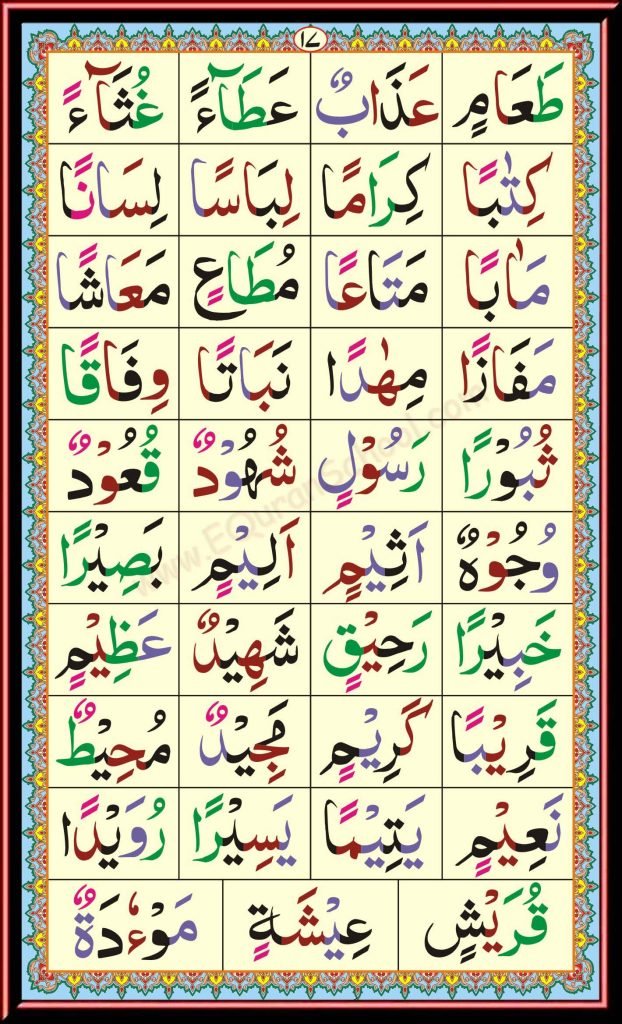 ١٤
طَعَامٍ عَذَابٌ عَطَآءً غُثَآءً
كِتٰبًا كِرَامًا لِبَاسًا لِسَانًا
مَاٰبًا مَتَاعًا مُطَاعٍ مَعَاشًا
مَفَازًا مِهٰدًا نَبَاتًا وِفَاقًا
ثُبُوْرًا رَسُوْلٍ شُهُوْدٌ قُعُوْدٌ
وُجُوْهٌ اَثِيْمٍ اَلِيْمٍ بَصِيْرًا
خَبِيْرًا رَحِيْقٍ شَهِيْدٌ عَظِيْمٍ
قَرِيْبًا كَرِيْمٍ مَجِيْدٌ مُحِيْطٌ
نَعِيْمٍ يَتِيْمًا يَسِيْرًا رُوَيْدًا
قُرَيْشٍ عِيْشَةٍ مَوْءٗدَةٌ
www.EQuranSchool.com